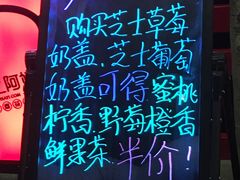 购买芝士草莓
奶盖、芝士葡萄
奶盖可得蜜桃
柠香、野莓橙香
鲜果茶半价!